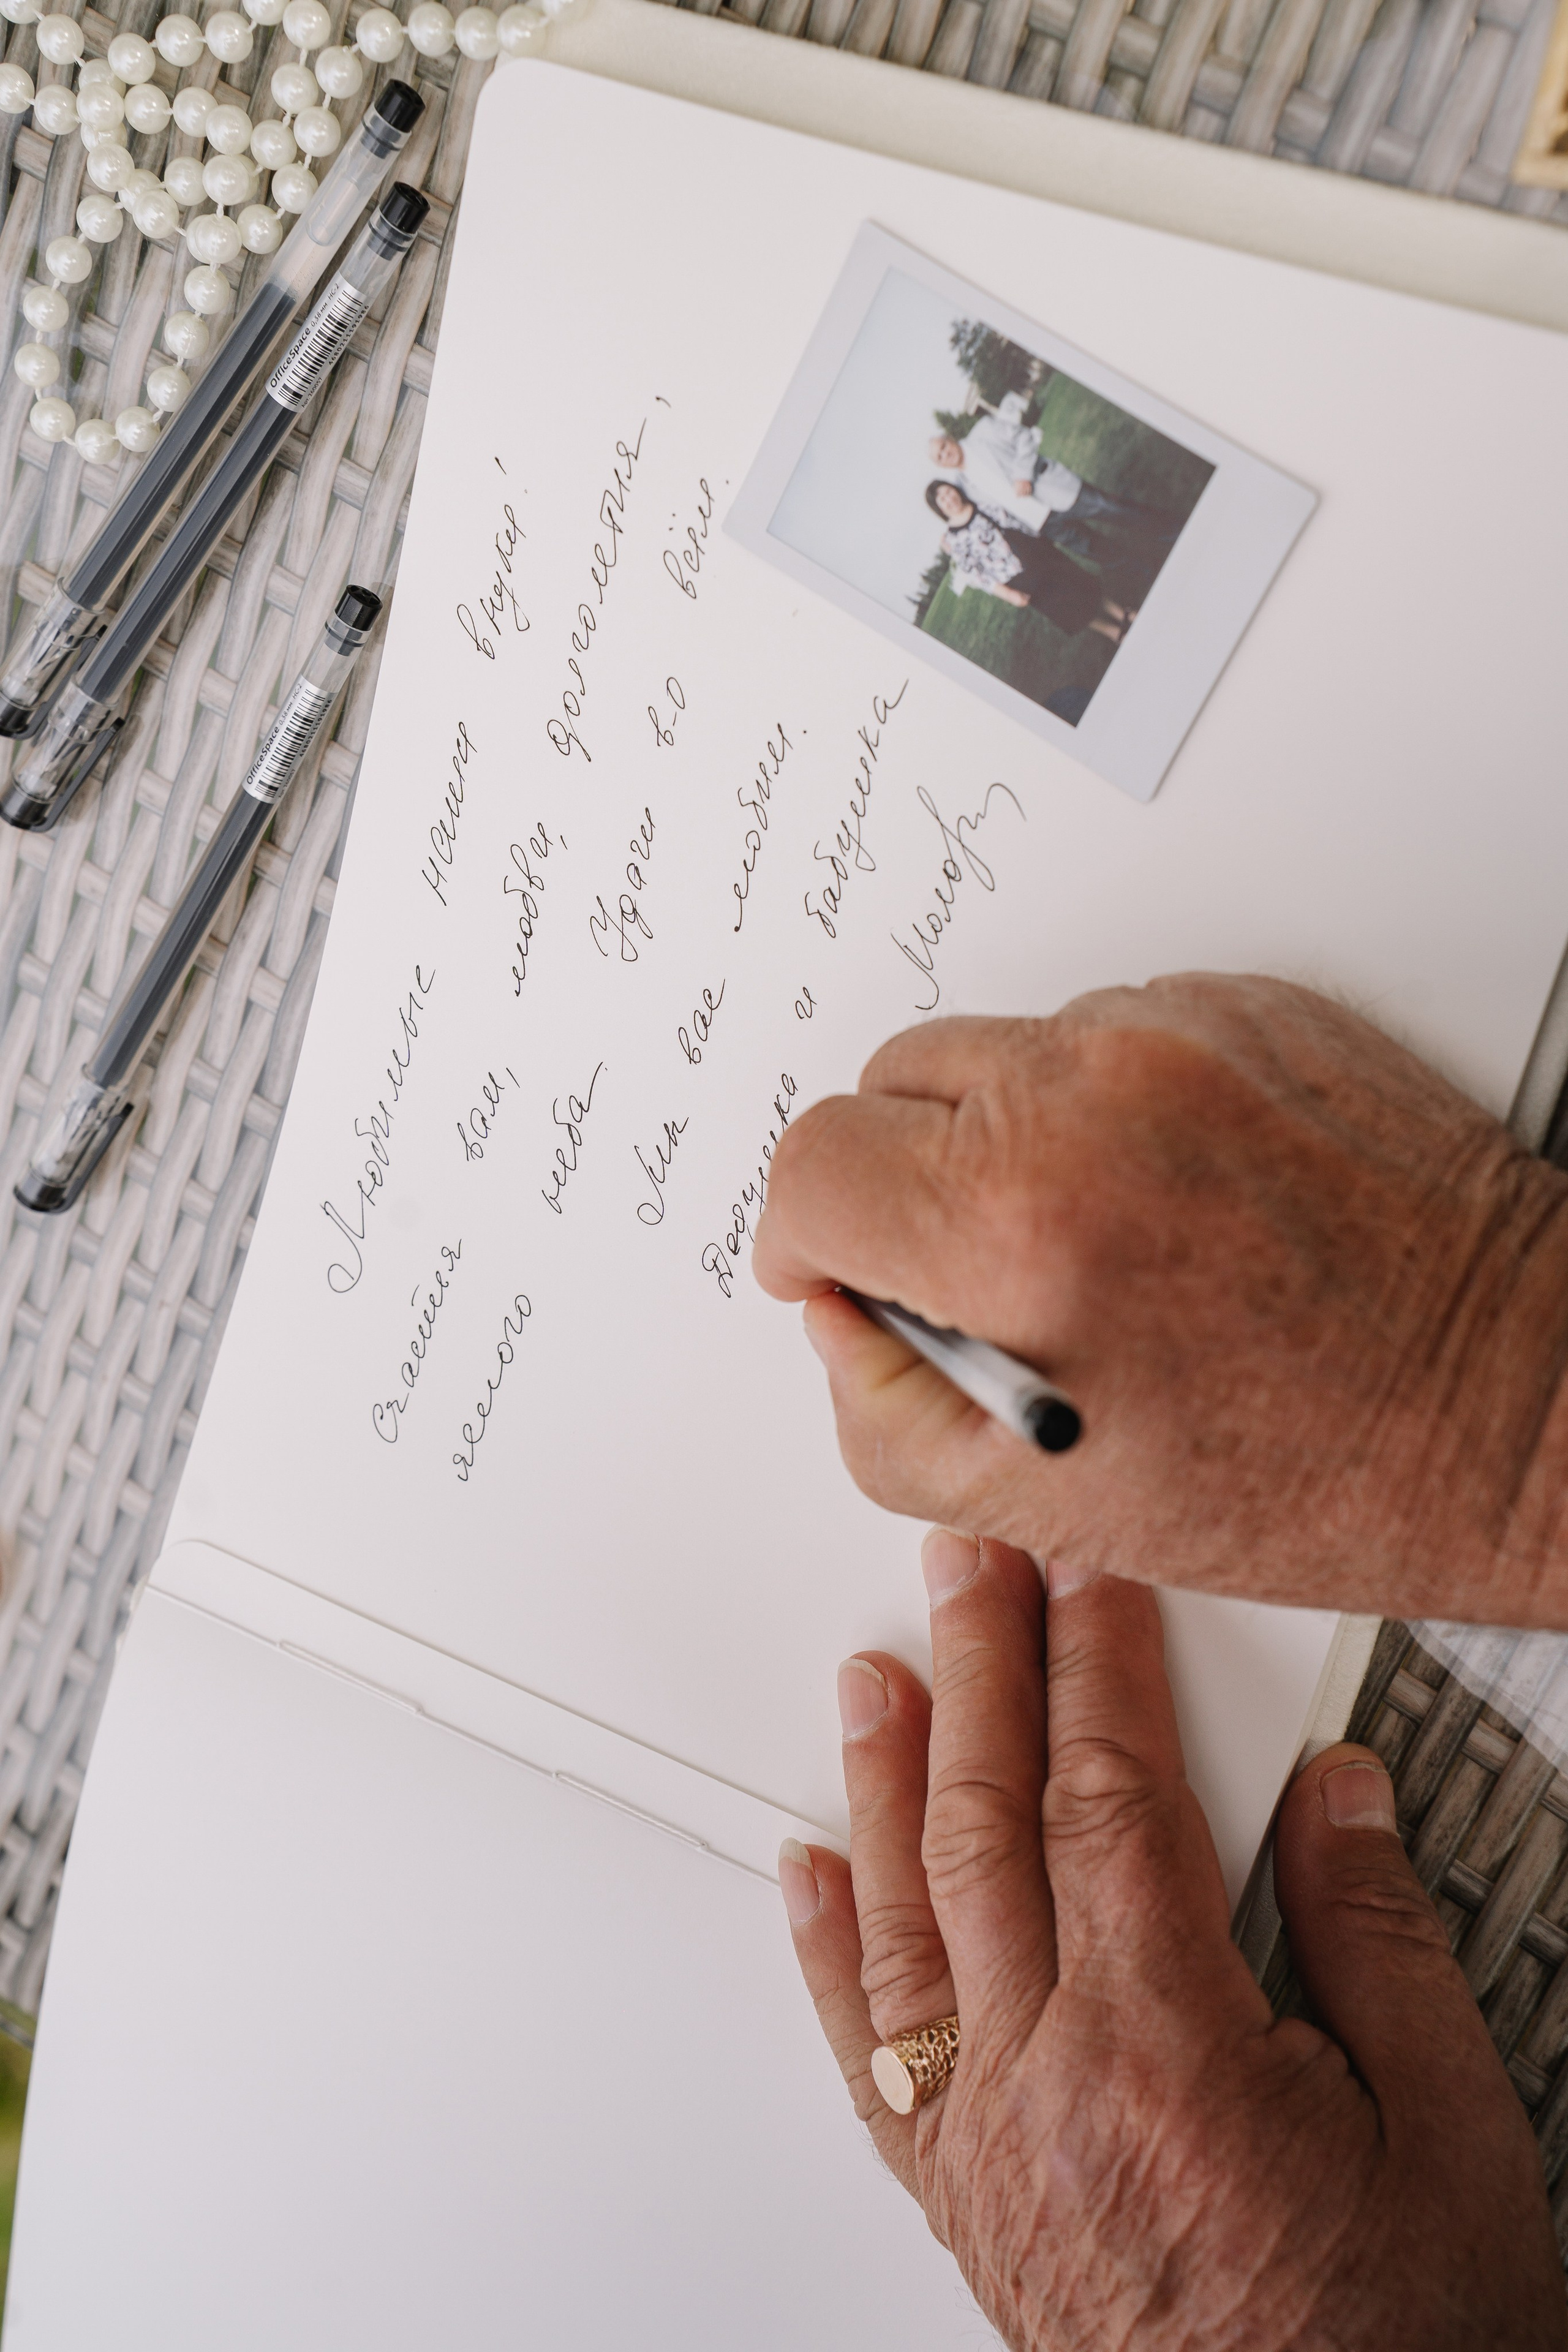 Любимые наши внуки!
Счастья вам, любви, долголетия,
ясного неба. Удачи в-о всём.
Мы вас любим.
Дедушка и бабушка
OfficeSpace
OfficeSpace